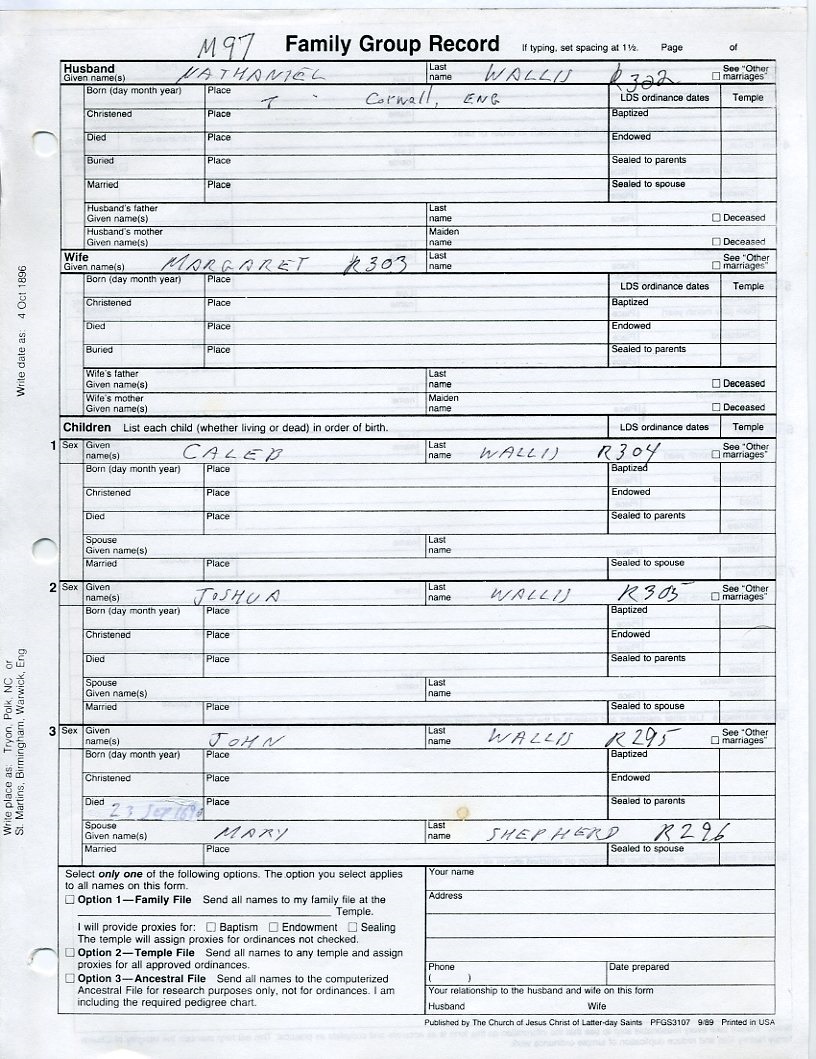 M97 Family Group Record If typing, set spacing at 1½. Page of
Husband Given name(s) NATHANIEL Last name WALLIS R322 See "Other marriages"
Born (day month year) Place Corwall, ENG LDS ordinance dates Temple
Christened Place Baptized
Died Place Endowed
Buried Place Sealed to parents
Married Place Sealed to spouse
Husband's father Given name(s) Last name Deceased
Husband's mother Given name(s) Maiden name Deceased
Wife Given name(s) MARGARET R303 Last name See "Other marriages"
Born (day month year) Place LDS ordinance dates Temple
Christened Place Baptized
Died Place Endowed
Buried Place Sealed to parents
Wife's father Given name(s) Last name Deceased
Wife's mother Given name(s) Maiden name Deceased
Children List each child (whether living or dead) in order of birth. LDS ordinance dates Temple
1 Sex Given name(s) CALEB Last name WALLIS R304 See "Other marriages"
Born (day month year) Place Baptized
Christened Place Endowed
Died Place Sealed to parents
Spouse Given name(s) Last name
Married Place Sealed to spouse
2 Sex Given name(s) JOSHUA Last name WALLIS R305 See "Other marriages"
Born (day month year) Place Baptized
Christened Place Endowed
Died Place Sealed to parents
Spouse Given name(s) Last name
Married Place Sealed to spouse
3 Sex Given name(s) JOHN Last name WALLIS R295 See "Other marriages"
Born (day month year) Place Baptized
Christened Place Endowed
Died 23 SEP Place Sealed to parents
Spouse Given name(s) MARY Last name SHEPHERD R296
Married Place Sealed to spouse
Select only one of the following options. The option you select applies
to all names on this form.
Option 1—Family File Send all names to my family file at the
Temple.
I will provide proxies for: Baptism Endowment Sealing
The temple will assign proxies for ordinances not checked.
Option 2—Temple File Send all names to any temple and assign
proxies for all approved ordinances.
Option 3—Ancestral File Send all names to the computerized
Ancestral File for research purposes only, not for ordinances. I am
including the required pedigree chart.
Your name
Address
Phone Date prepared
( )
Your relationship to the husband and wife on this form
Husband Wife
Published by The Church of Jesus Christ of Latter-day Saints PFGS3107 9/89 Printed in USA
Write date as: 4 Oct 1896
Write place as: Tryon, Polk, NC or
St. Martins, Birmingham, Warwick, Eng